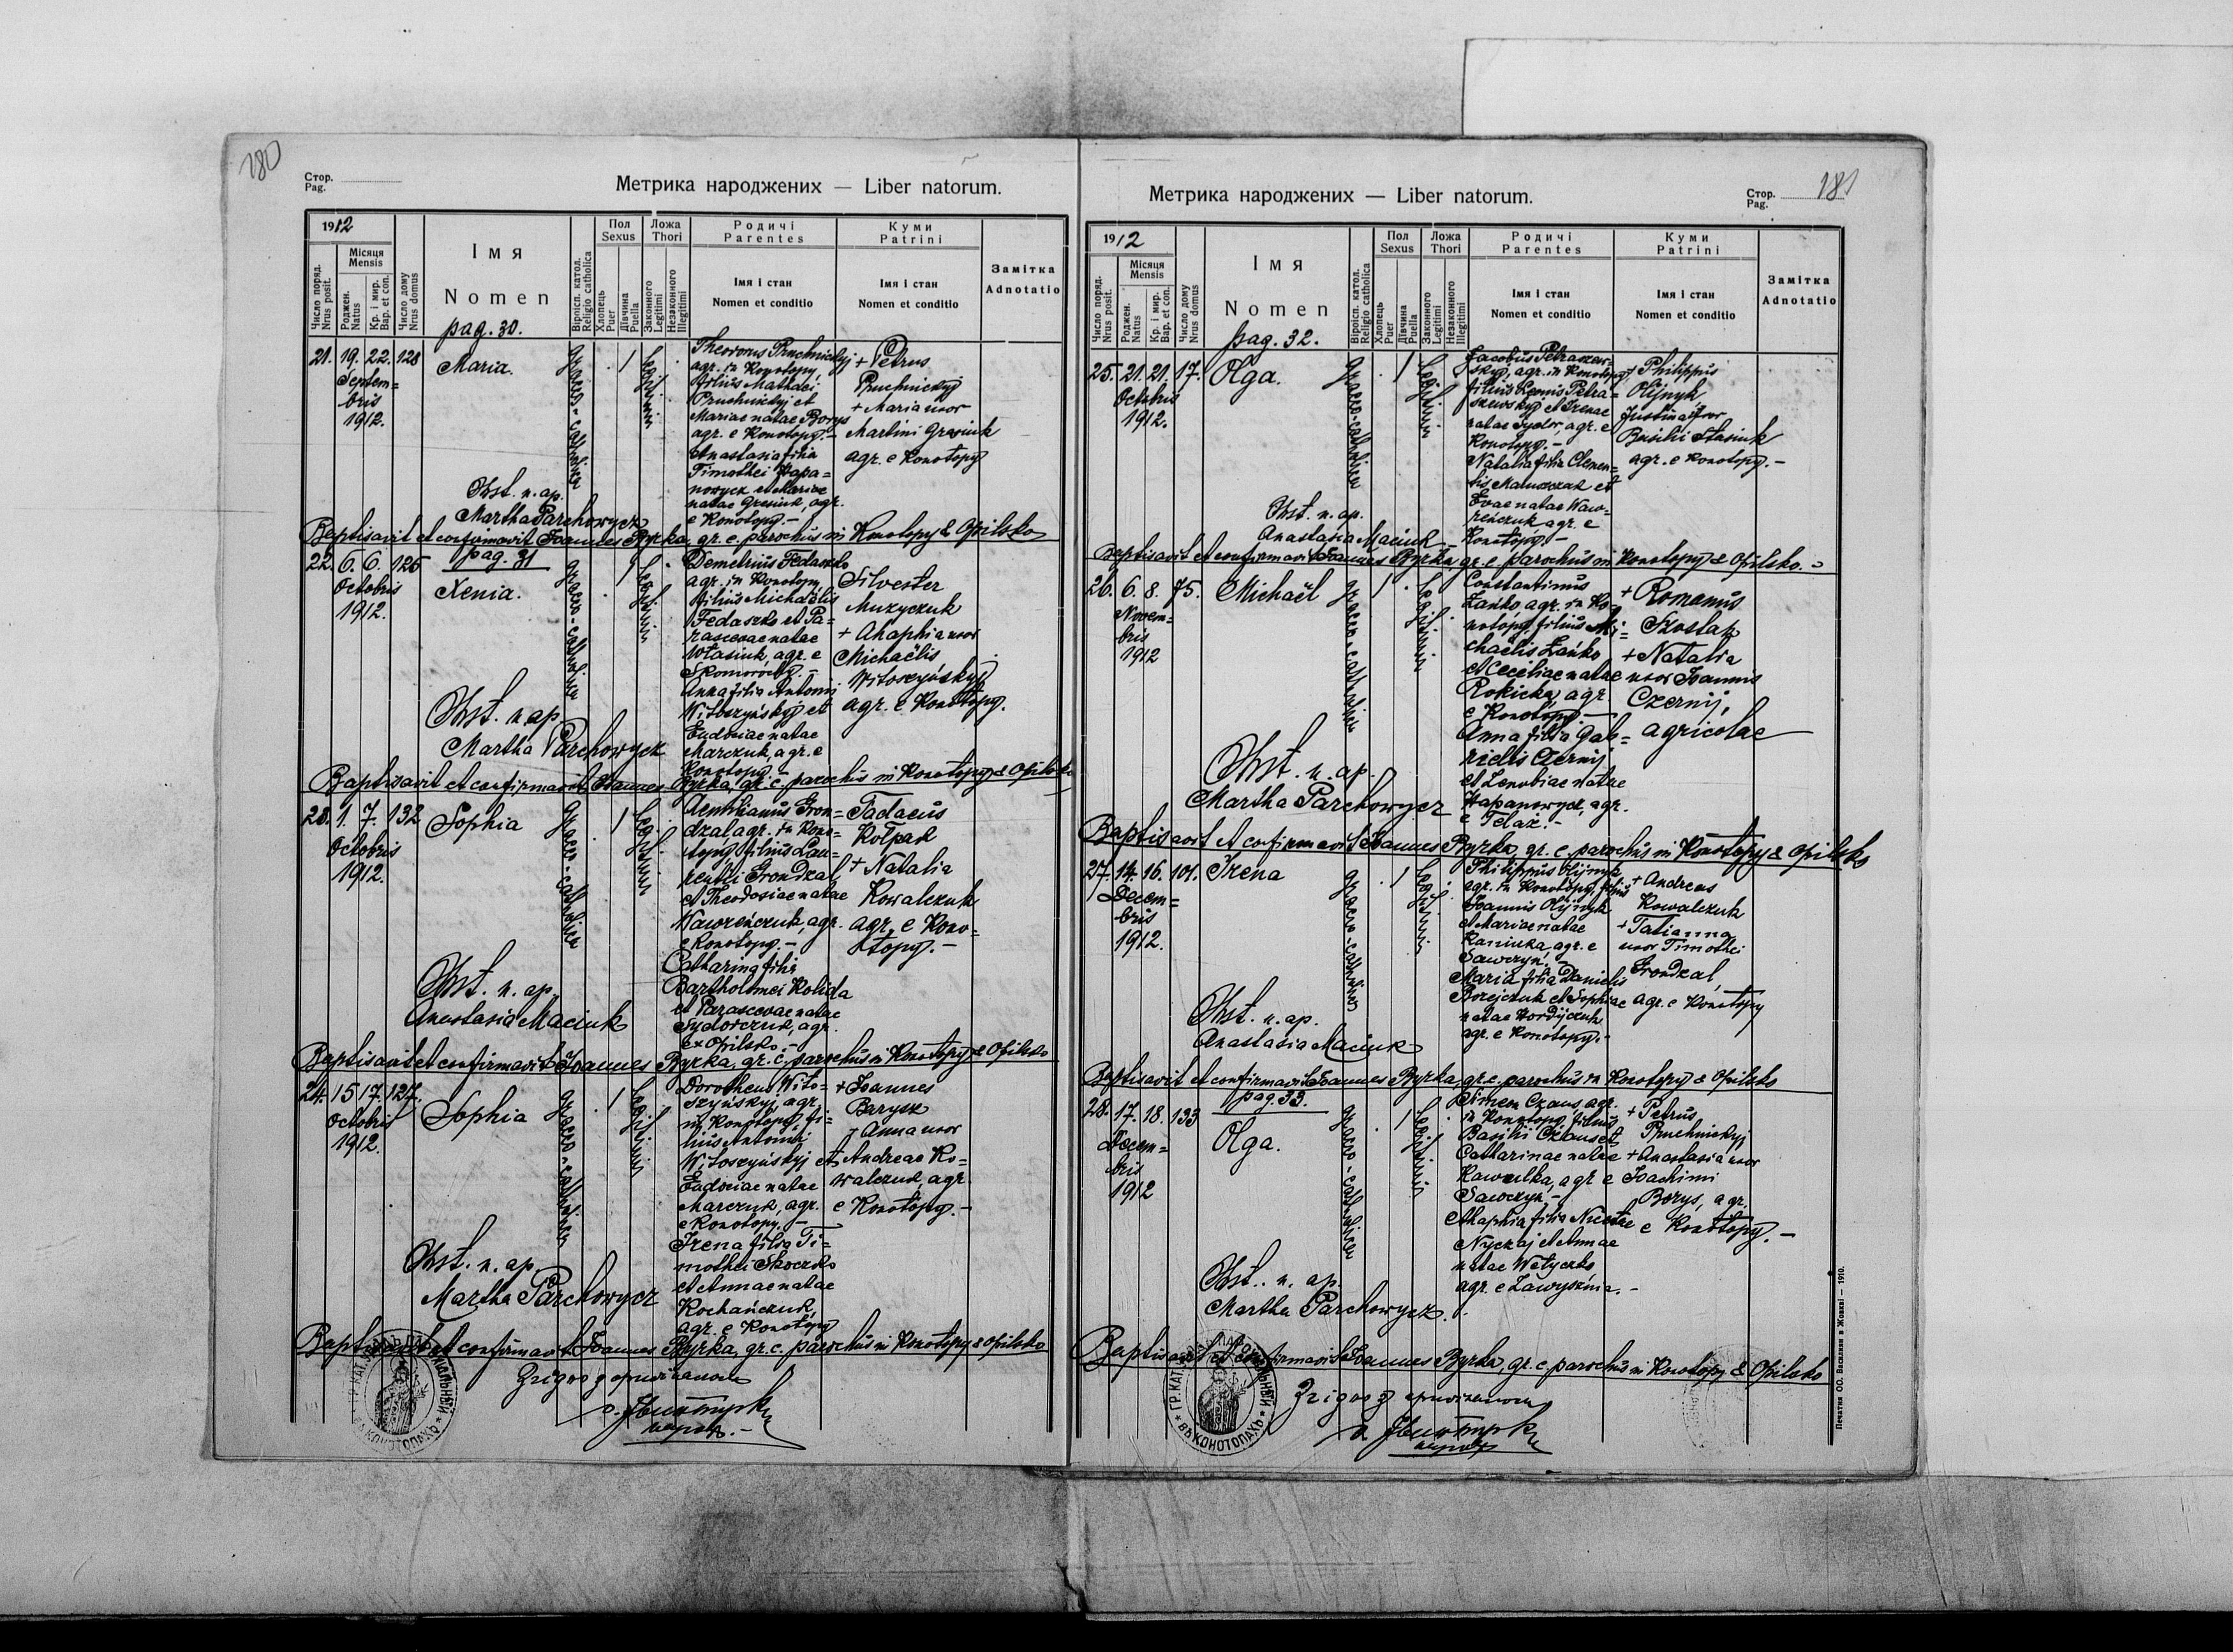 180
Стор.
Pag.
Метрика народжених — Liber natorum.
1912
Місяця
Mensis
Число поряд.
Nrus posit.
Роджен.
Natus
Кр. і мир.
Bap. et con.
Число дому
Nrus domus
Імя
Nomen
pag. 30.
Віроісп. катол.
Religio catholica
Пол
Sexus
Хлопець
Puer
Дівчина
Puella
Ложа
Thori
Законного
Legitimi
Незаконного
Illegitimi
Родичі
Parentes
Імя і стан
Nomen et conditio
Куми
Patrini
Імя і стан
Nomen et conditio
Замітка
Adnotatio
21. 19. 22. 128
Septem=
bris
1912.
Maria.
graeco-catholica
1
Legitimi
Theodorus Pruchnickyj
agr. in Konotopy,
filius Mathaei
Pruchnickyj et
Mariae natae Borys
agr. e Konotopy.-
Anastasia filia
Timothei Hapa=
nowycz et Mariae
natae Gresiuk, agr.
e Konotopy.-
+ Petrus
Pruchnickyj
+ Maria uxor
Martini Gresiuk
agr. e Konotopy
Obst. n. ap.
Martha Parchowycz
Baptisavit et confirmavit Joannes Byrka, gr. c. parochus in Konotopy & Opilsko
pag. 31
22. 6. 6. 126
Octobris
1912.
Xenia.
graeco-catholica
1
Legitimi
Demetrius Fedaszko
agr. in Konotopy
filius Michaëlis
Fedaszko et Pa=
rascevae natae
Własiuk, agr. e
Skomorochy.-
Anna filia Antonii
Witoszyńskyj et
Eudociae natae
Marczuk, agr. e
Konotopy.-
Silvester
Muzyczuk
+ Ahaphia uxor
Michaëlis
Witoszyńskyj
agr. e Konotopy.
Obst. n. ap.
Martha Parchowycz
Baptisavit et confirmavit Joannes Byrka, gr. c. parochus in Konotopy & Opilsko
23. 1. 7. 132
Octobris
1912.
Sophia
graeco-catholica
1
Legitimi
Aemilianus Gron=
dzal agr. in Kono=
topy, filius Lau=
rentii Grondzal,
et Theodosiae natae
Nawrenczuk, agr.
e Konotopy.-
Catharina filia
Bartholomei Kolida
et Parascevae natae
Sydorczuk, agr.
ex Opilsko.-
Tadaeus
Kolpak
+ Natalia
Kowalczuk
agr. e Kono=
topy.-
Obst. n. ap.
Anastasia Maciuk
Baptisavit et confirmavit Joannes Byrka, gr. c. parochus in Konotopy & Opilsko
24. 15 17. 127.
Octobris
1912.
Sophia
graeco-catholica
1
Legitimi
Dorotheus Wito=
szyńskyj, agr.
in Konotopy, fi=
lius Antonii
Witoszyńskyj et
Eudociae natae
Marczuk, agr.
e Konotopy.-
Irena filia Ti=
mothei Skoczko
et Annae natae
Kochańczuk,
agr. e Konotopy
+ Joannes
Barysz
+ Anna uxor
Andreae Ko=
walczuk, agr.
e Konotopy.-
Obst. n. ap.
Martha Parchowycz
Baptisavit et confirmavit Joannes Byrka, gr. c. parochus in Konotopy & Opilsko
ВЪ КОНОТОПАХЪ
181
Метрика народжених — Liber natorum.
Стор.
Pag.
1912
Місяця
Mensis
Число поряд.
Nrus posit.
Роджен.
Natus
Кр. і мир.
Bap. et con.
Число дому
Nrus domus
Імя
Nomen
pag. 32.
Віроісп. катол.
Religio catholica
Пол
Sexus
Хлопець
Puer
Дівчина
Puella
Ложа
Thori
Законного
Legitimi
Незаконного
Illegitimi
Родичі
Parentes
Імя і стан
Nomen et conditio
Куми
Patrini
Імя і стан
Nomen et conditio
Замітка
Adnotatio
25. 21. 21. 17.
Octobris
1912.
Olga.
graeco-catholica
1
Legitimi
Jacobus Petraszew=
skyj, agr. in Konotopy,
filius Leonis Petra=
szewskyj et Irenae
natae Sydor, agr. e
Konotopy.-
Natalia filia Clemen=
tis Matuszczak et
Evae natae Waw=
renczuk agr. e
Konotopy.-
+ Philippus
Olijnyk
Justina uxor
Basilii Stasiuk
agr. e Konotopy.-
Obst. n. ap.
Anastasia Maciuk
Baptisavit et confirmavit Joannes Byrka, gr. c. parochus in Konotopy & Opilsko.-
26. 6. 8. 75.
Novem=
bris
1912
Michaël
graeco-catholica
1
Legitimi
Constantinus
Łańko agr. in Ko=
notopy, filius Mi=
chaëlis Łańko
et Ceciliae natae
Rokicka, agr.
e Konotopy.-
Anna filia Gab=
rielis Czernij
et Zenobiae natae
Hapanowycz, agr.
e Telaż.-
+ Romanus
Szostak
+ Natalia
uxor Joannis
Czernij,
agricolae
Obst. n. ap.
Martha Parchowycz
Baptisavit et confirmavit Joannes Byrka, gr. c. parochus in Konotopy & Opilsko
27. 14. 16. 101.
Decem=
bris
1912.
Irena
graeco-catholica
1
Legitimi
Philippus Olijnyk
agr. in Konotopy, filius
Joannis Olijnyk
et Mariae natae
Kaniuka, agr. e
Sawczyn.-
Maria filia Danielis
Borejczuk et Sophiae
natae Hordijczuk
agr. e Konotopy.-
+ Andreas
Kowalczuk
+ Tatianna
uxor Timothei
Grondzal,
agr. e Konotopy
Obst. n. ap.
Anastasia Maciuk
Baptisavit et confirmavit Joannes Byrka, gr. c. parochus in Konotopy & Opilsko
pag. 33.
28. 17. 18. 133
Decem=
bris
1912
Olga.
graeco-catholica
1
Legitimi
Simeon Czaus agr.
in Konotopy, filius
Basilii Czaus et
Catharinae natae
Kawulka, agr. e
Sawczyn.-
Ahaphia filia Nicetae
Nyczaj et Annae
natae Watyczko
agr. e Zawysznia.-
+ Petrus
Pruchnickyj
+ Anastasia uxor
Joachimi
Borys, agr.
e Konotopy.-
Obst. n. ap.
Martha Parchowycz.
Baptisavit et confirmavit Joannes Byrka, gr. c. parochus in Konotopy & Opilsko
ГР. КАТ.
ВЪ КОНОТОПАХЪ
Печатня ОО. Василиян в Жовкві — 1910.